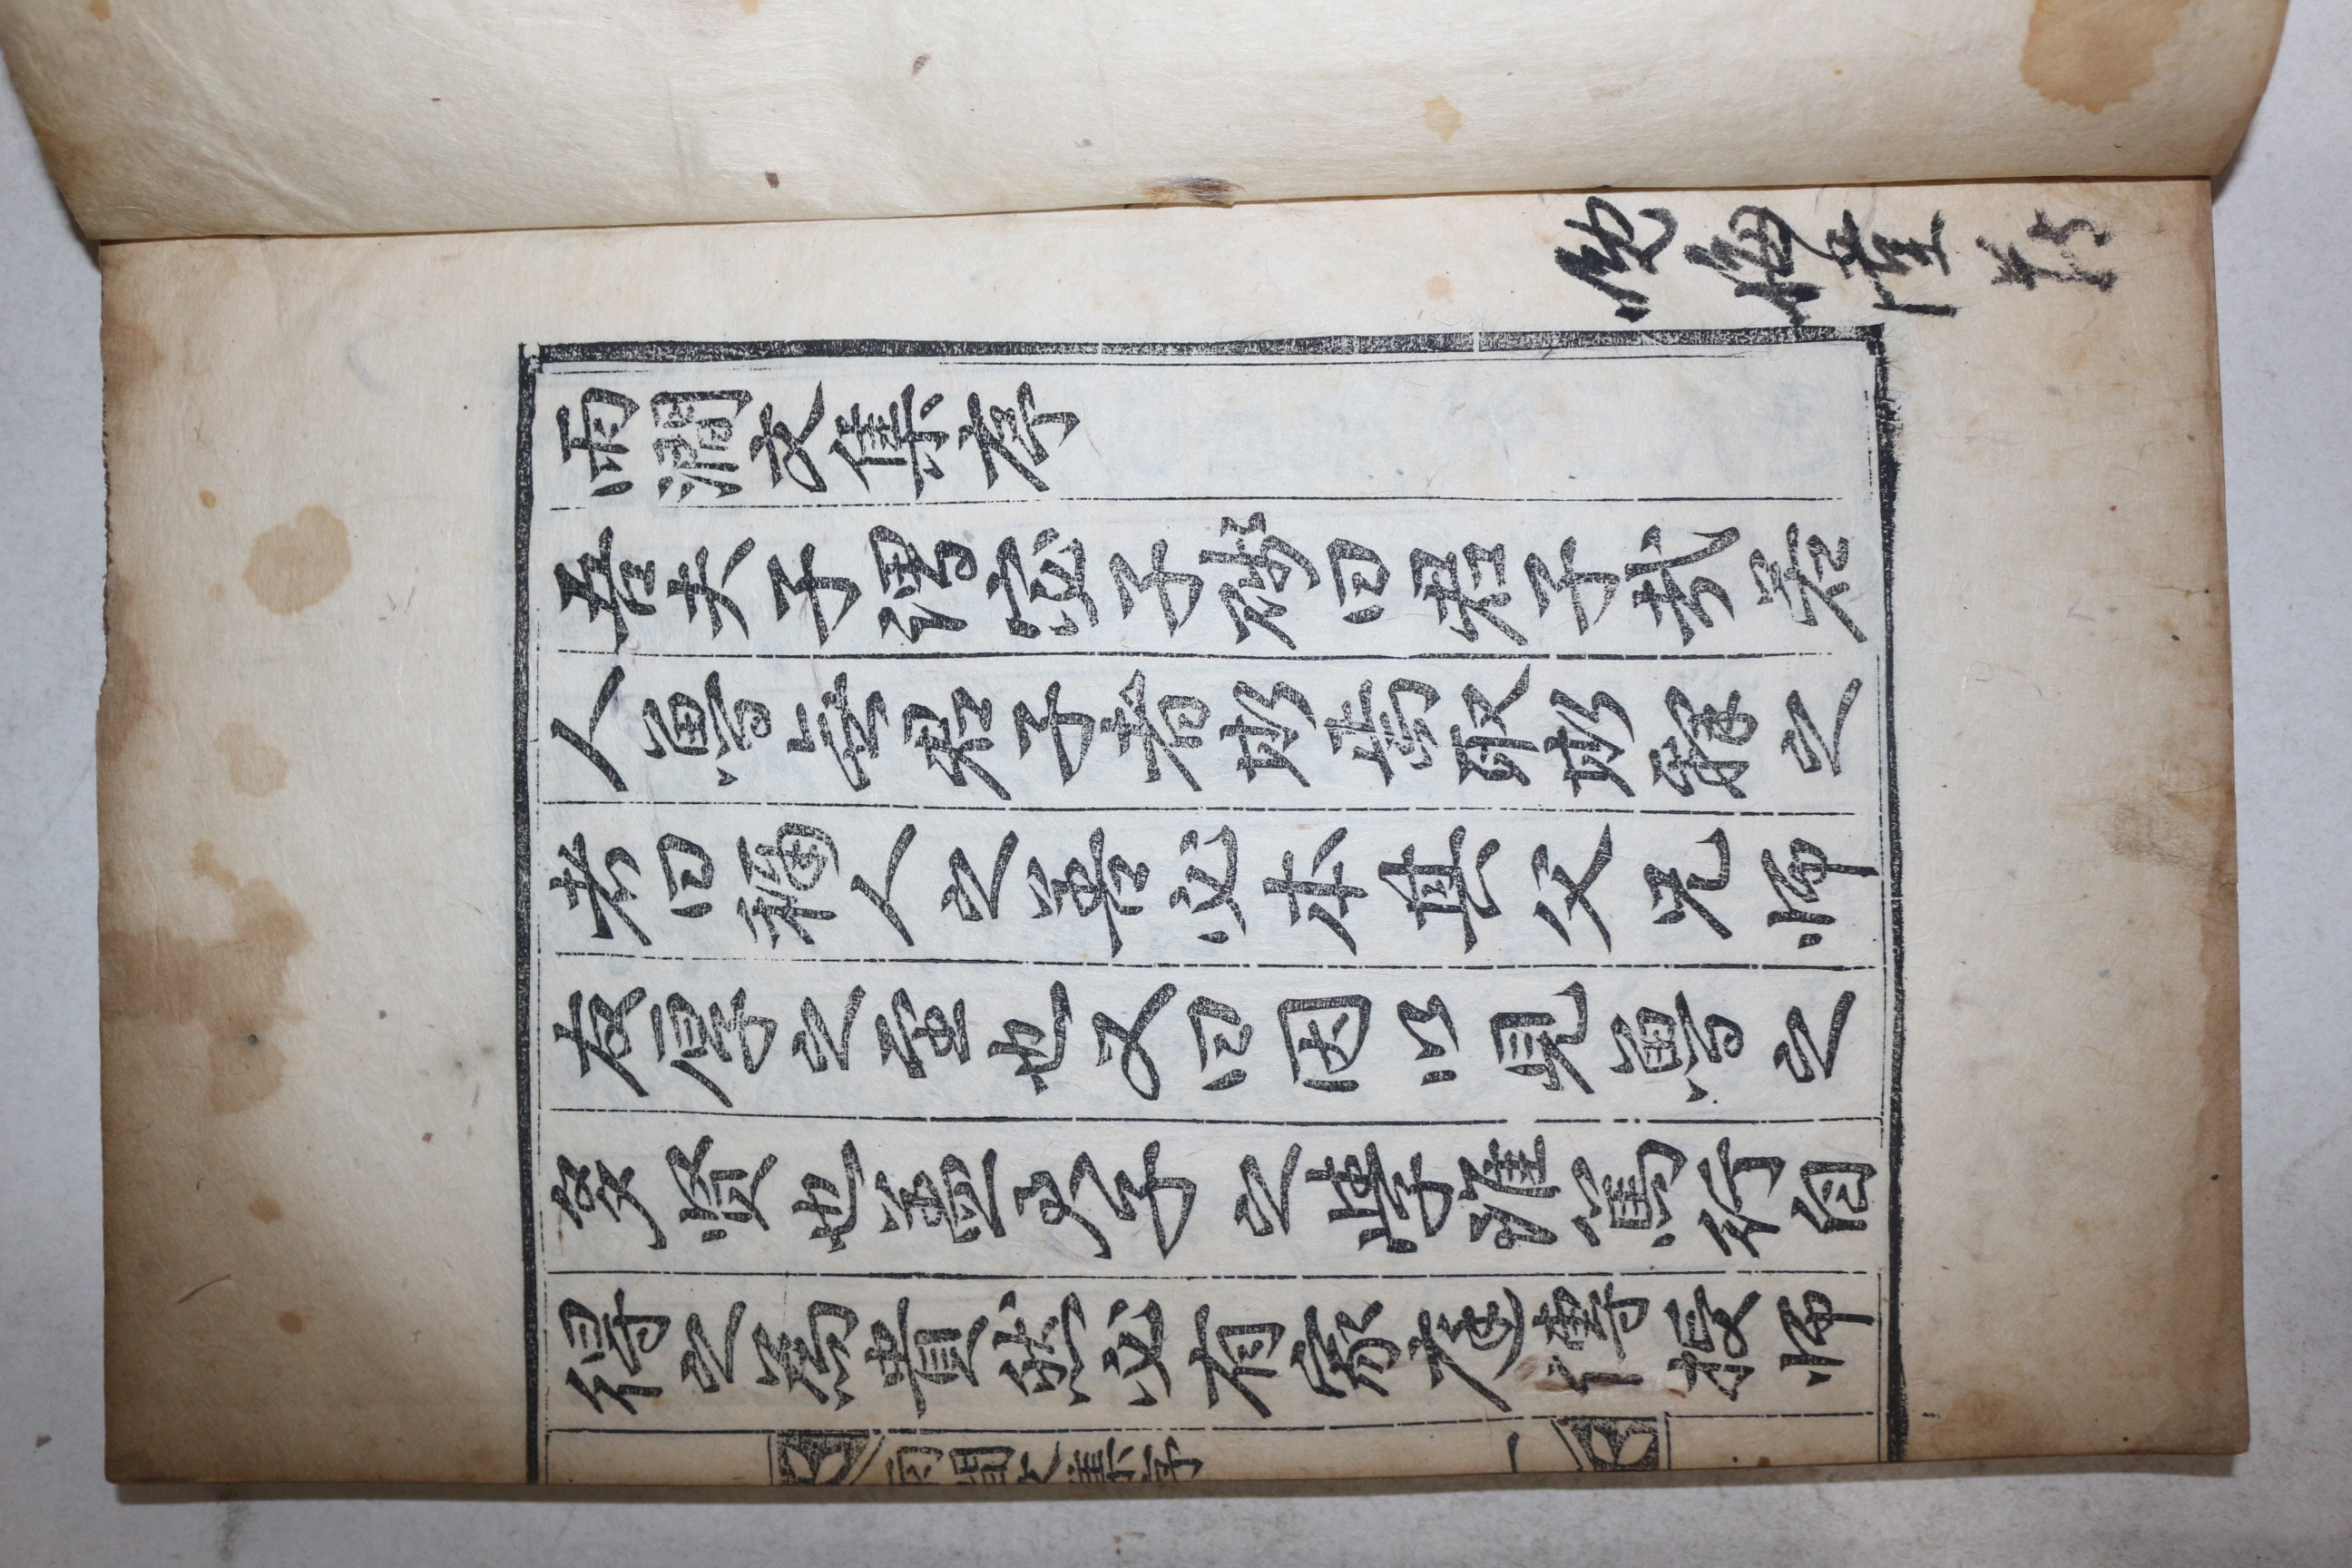 晚悔堂藏
雨澗文集序
吾夫子謂宓子賤曰君子哉若
人魯無君子者斯焉取斯釋之
者曰稱人之善必本其父兄師
友厚之至也又曰因以見魯之
多賢也盖君子之學雖篤行自
得之為貴然必有家庭傳授師
雨澗文集序 一